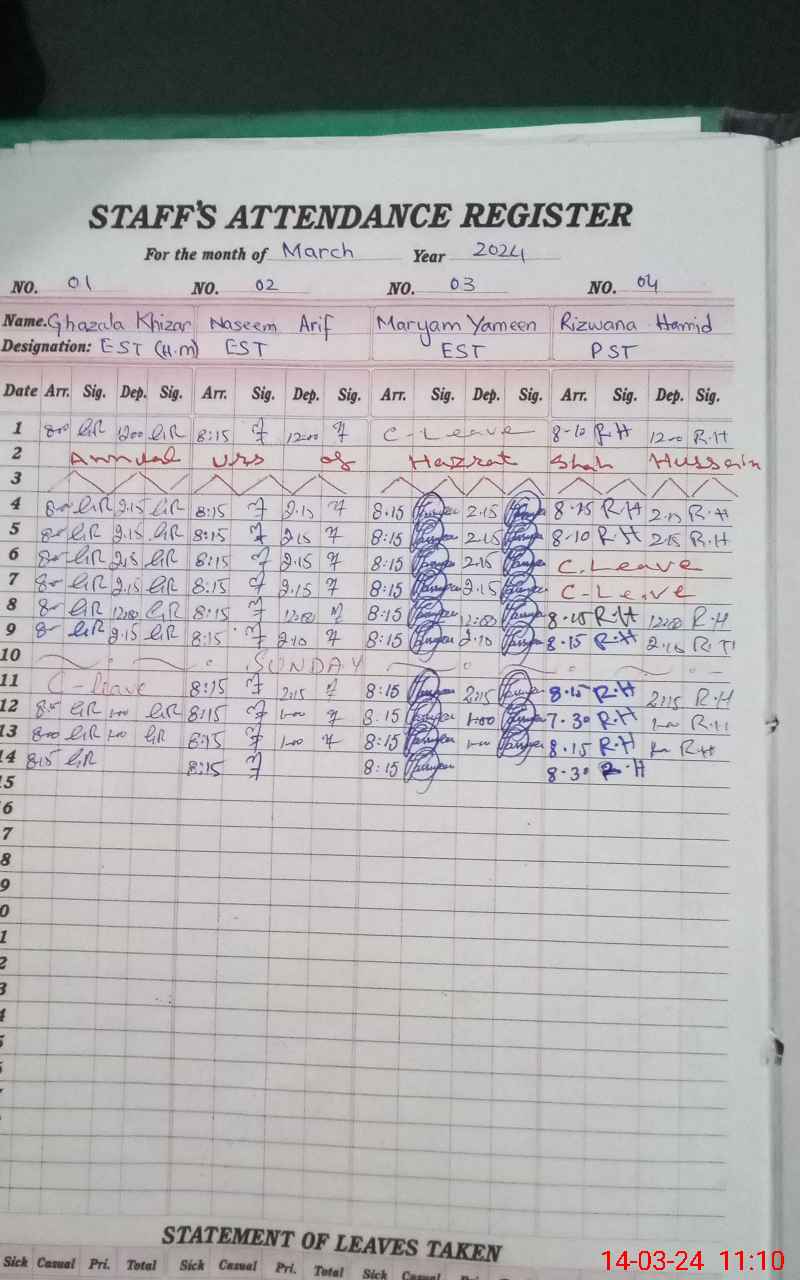 STAFF'S ATTENDANCE REGISTER
For the month of March Year 2024
NO. 01 NO. 02 NO. 03 NO. 04
Name. Ghazala Khizar Naseem Arif Maryam Yameen Rizwana Hamid
Designation: EST (H.m) EST EST PST
Date Arr. Sig. Dep. Sig. Arr. Sig. Dep. Sig. Arr. Sig. Dep. Sig. Arr. Sig. Dep. Sig.
1 800 GR 1200 GR 8:15 1200 C-Leave 8-10 R.H 1200 R.H
2 Annual Urs of Hazrat Shah Hussain
3
4 800 GR 2.15 GR 8:15 2.15 8.15 2.15 8.15 R.H 2.15 R.H
5 800 GR 2.15 GR 8:15 2.15 8:15 2.15 8-10 R.H 2.15 R.H
6 800 GR 2.15 GR 8:15 2.15 8:15 2.15 C.Leave
7 800 GR 2.15 GR 8:15 2.15 8:15 2.15 C-Leave
8 800 GR 1200 GR 8:15 12:00 8:15 12:00 8.15 R.H 12:00 R.H
9 800 GR 2.15 GR 8:15 2.10 8:15 2.10 8.15 R.H 2.10 R.H
10 SUNDAY
11 C-leave 8:15 2:15 8:15 2:15 8.15 R.H 2:15 R.H
12 GR 1.00 GR 8:15 1.00 8.15 1.00 7.30 R.H 1.00 R.H
13 800 GR 1.00 GR 8:15 1.00 8:15 1.00 8.15 R.H 1.00 R.H
14 8:15 GR 8:15 8:15 8.30 R.H
5
6
7
8
9
0
1
2
3
4
5
STATEMENT OF LEAVES TAKEN
Sick Casual Pri. Total Sick Casual Pri. Total Sick Casual
14-03-24 11:10